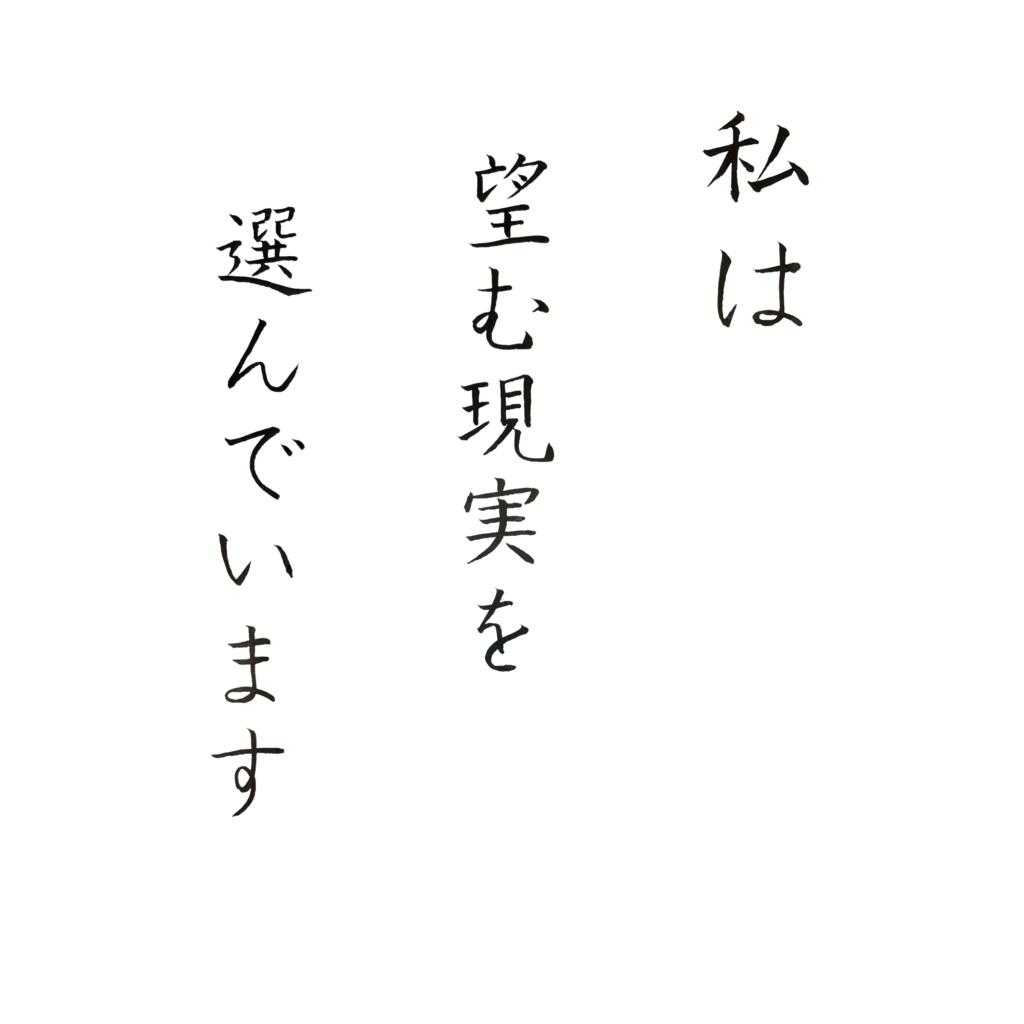 私は
望む現実を
選んでいます